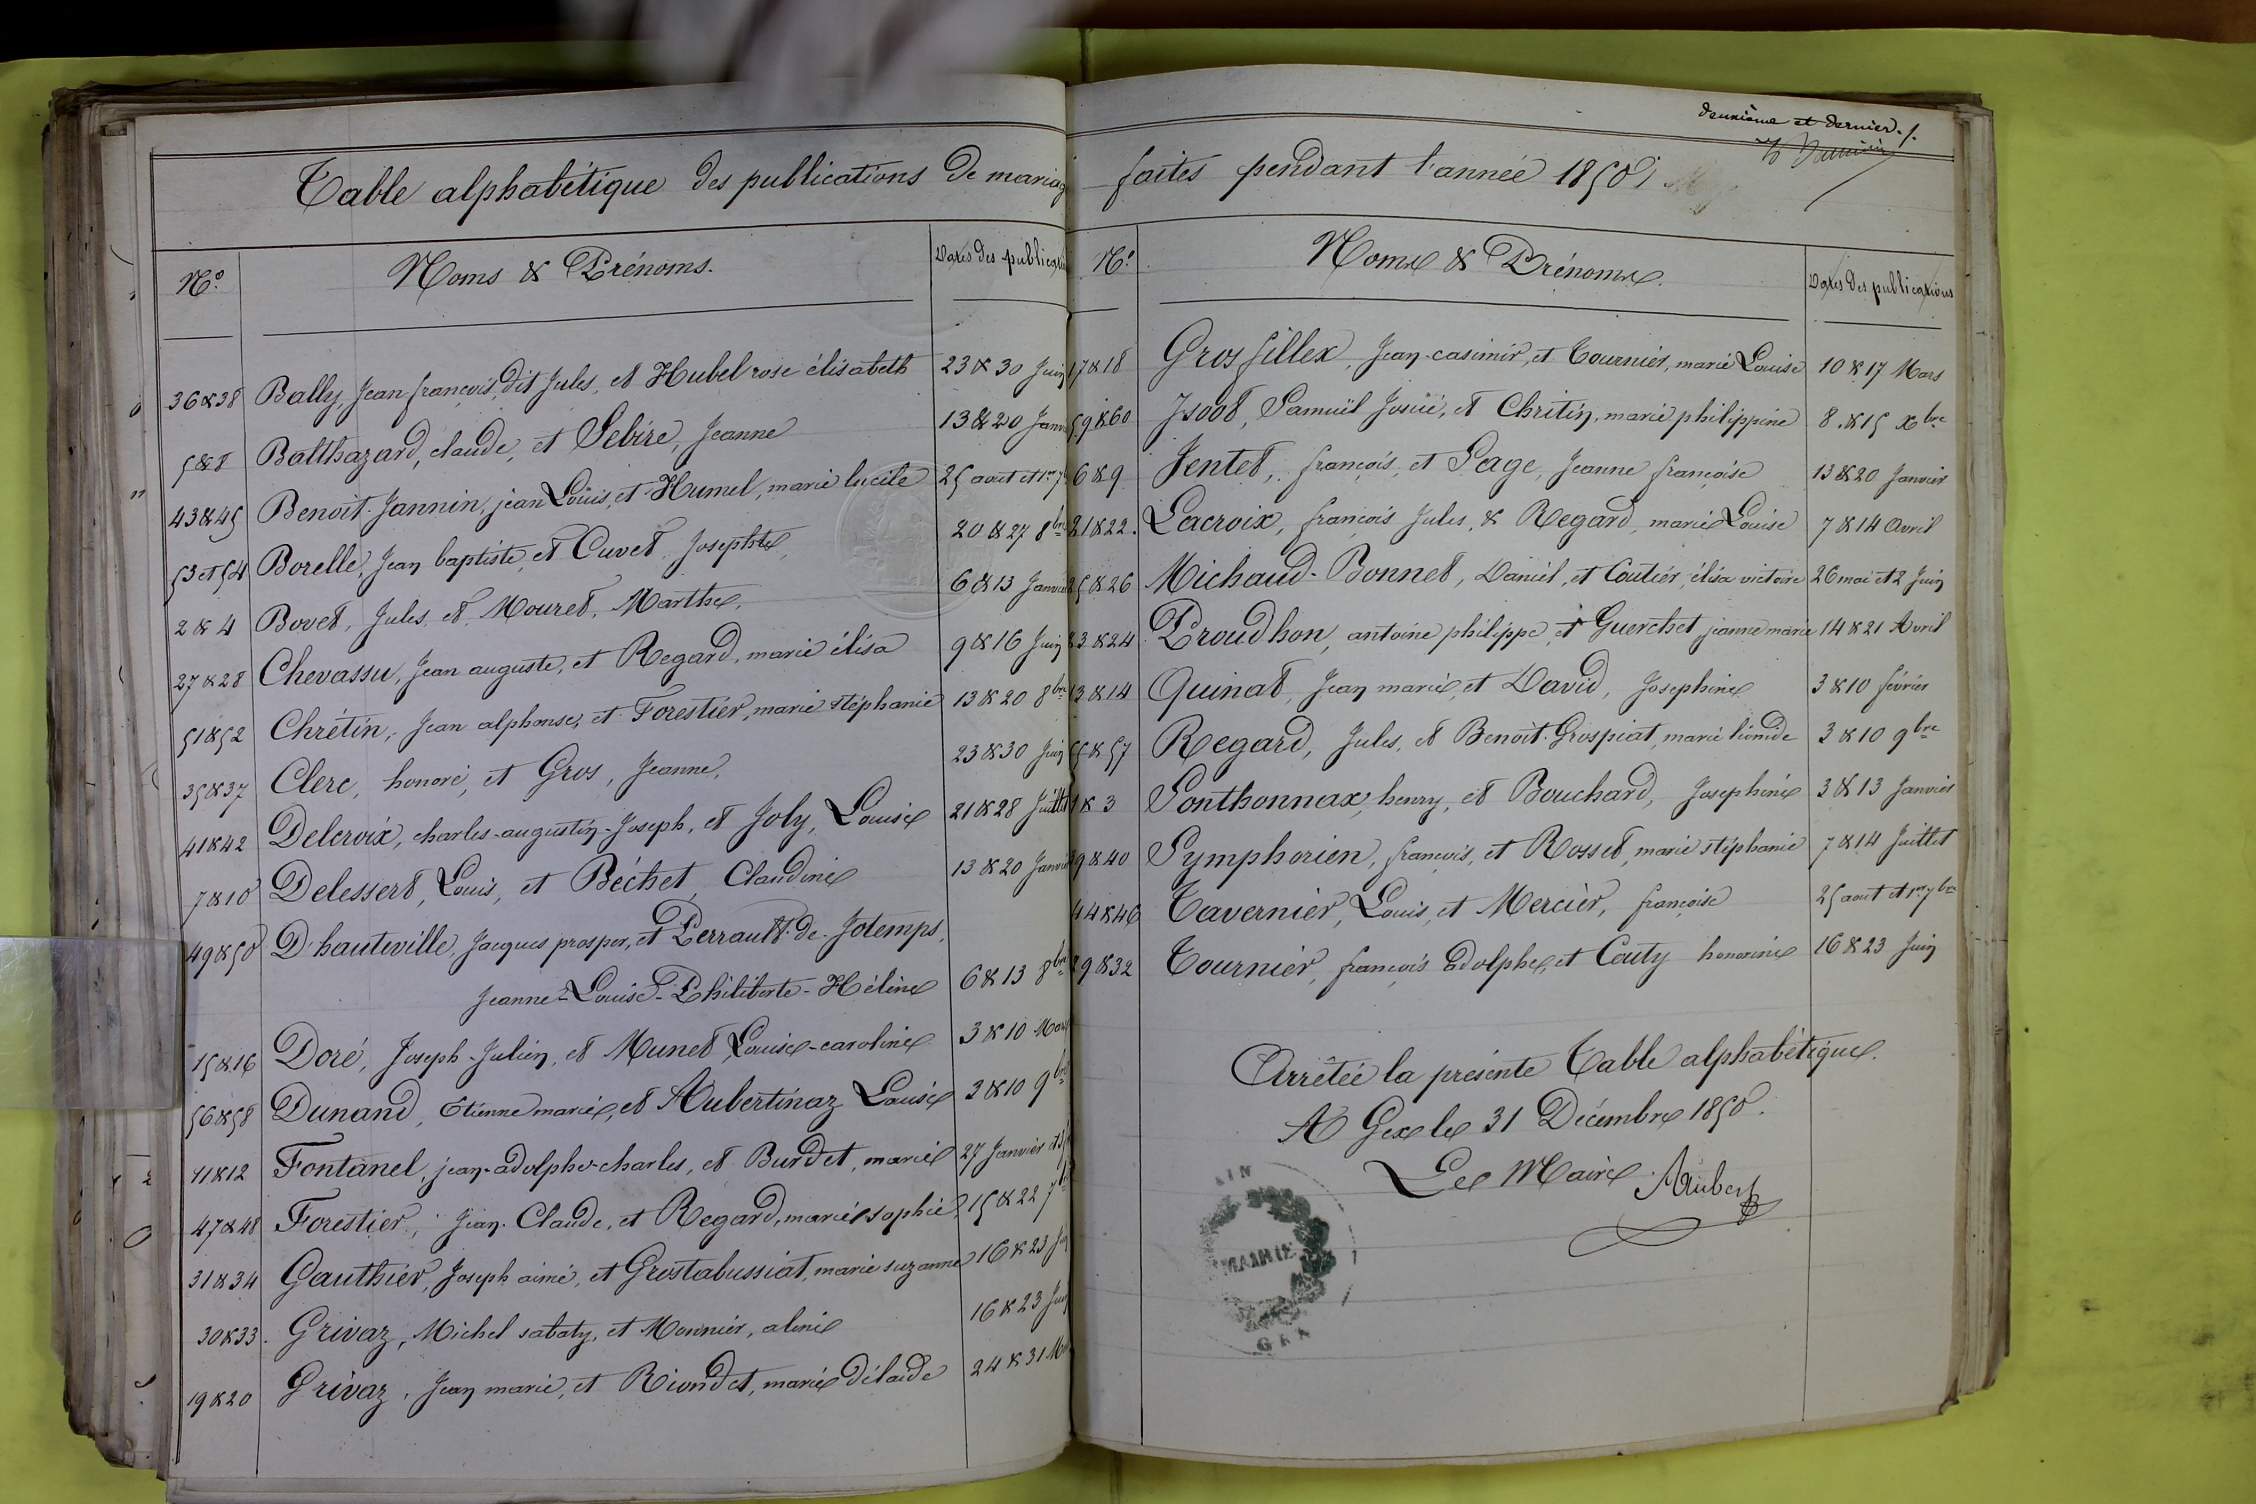 Table alphabétique des publications de mariag
Nos
Noms & Prénoms.
Dates des publicatio
36&38 Bally, Jean françois, dit Jules, et Hubel rose élisabeth 23 & 30 Juin
5&8 Balthazard, claude, et Sebire, Jeanne 13 & 20 Janv
43&45 Benoit-Jannin, jean Louis, et Humel, marie lucile 25 aout et 1er 7
53 et 54 Borelle, Jean baptiste, et Cuvet Josephte, 20 & 27 8bre
2 & 4 Bovet, Jules, et Mouret, Marthe, 6 & 13 Janvier
27&28 Chevassu, Jean auguste, et Regard, marie élisa 9 & 16 Juin
51&52 Chrétin, Jean alphonse, et Forestier, marie stéphanie 13 & 20 8bre
35&37 Clerc, honoré, et Gros, Jeanne, 23 & 30 Juin
41&42 Delcroix, charles-augustin-Joseph, et Joly, Louise 21 & 28 Juillet
7&10 Delessert, Louis, et Béchet, Claudine 13 & 20 Janvier
49&50 D'hauteville, Jacques prosper, et Perrault-de-Jotemps,
Jeanne-Louise-Philiberte-Hélène 6 & 13 8bre
15&16 Doré, Joseph-Julien, et Munet, Louise-caroline 3 & 10 Mars
56&58 Dunand, Etienne marie, et Aubertinaz Louise 3 & 10 9bre
11&12 Fontanel, jean-adolphe-charles, et Burdet, marie 27 Janvier et 3
47&48 Forestier, Jean-Claude, et Regard, marie sophie, 15 & 22 7b
31&34 Gauthier, Joseph aimé, et Grostabussiat, marie suzanne 16 & 23 Ju
30&33. Grivaz, Michel sabaty, et Monnier, aline 16 & 23 Juin
19&20 Grivaz, Jean marie, et Riondet, marie délaïde 24 & 31 Ma
deuxième et dernier./.
faites pendant l'année 1850
No.
Noms & Prénoms.
Dates des publications
17&18 Grosfillex, Jean-casimir, et Tournier, marie Louise 10 & 17 Mars
59&60 Jsoot, Samuël Josüé, et Chritin, marie philippine 8 & 15 xbre
6&9 Jentet, françois, et Page, Jeanne françoise 13 & 20 Janvier
21&22. Lacroix, françois Jules, & Regard, marie Louise 7 & 14 Avril
25&26 Michaud-Bonnet, Daniel, et Coutier, élisa victoire 26 mai et 2 Juin
23&24 Proudhon, antoine philippe, et Guerchet jeanne marie 14 & 21 Avril
13&14 Quinat, Jean marie, et David, Josephine 3 & 10 février
55&57 Regard, Jules, et Benoit-Grospiat, marie léonide 3 & 10 9bre
1&3 Sonthonnax, henry, et Bouchard, Josephine 3 & 13 Janvier
39&40 Symphorien, françois, et Rosset, marie stéphanie 7 & 14 Juillet
44&46 Tavernier, Louis, et Mercier, françoise 25 aout et 1er 7bre
29&32 Tournier, françois adolphe, et Couty honorine 16 & 23 Juin
Arrêtée la présente Table alphabétique.
A Gex le 31 Décembre 1850.
Le Maire Aubert
AIN
MAIRIE
GEX